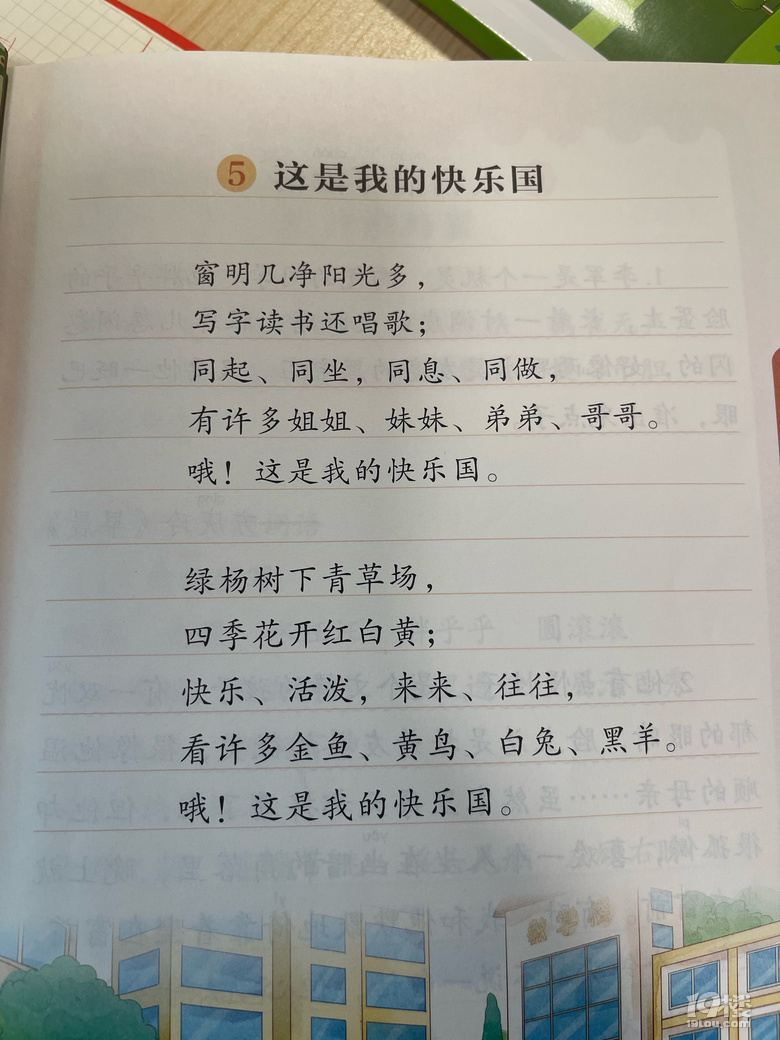 5 这是我的快乐国
窗明几净阳光多，
写字读书还唱歌；
同起、同坐，同息、同做，
有许多姐姐、妹妹、弟弟、哥哥。
哦！这是我的快乐国。
绿杨树下青草场，
四季花开红白黄；
快乐、活泼，来来、往往，
看许多金鱼、黄鸟、白兔、黑羊。
哦！这是我的快乐国。
教学楼
19楼
19lou.com